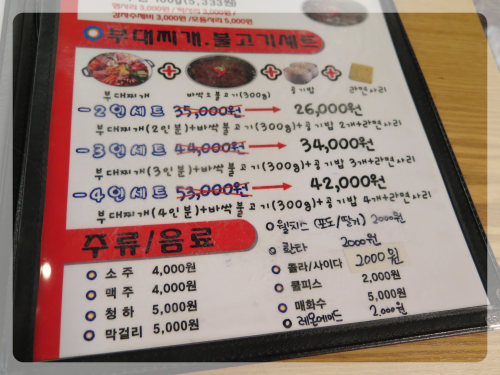 100g(5,333원)
햄사리 3,000원 / 떡사리 3,000원 /
감자수제비 3,000원 / 모듬사리 5,000원
부대찌개.불고기세트
부대찌개 + 바싹도불고기(300g) + 공기밥 + 라면사리
-2인세트 35,000원 → 26,000원
부대찌개(2인분)+바싹불고기(300g)+공기밥 2개+라면사리
-3인세트 44,000원 → 34,000원
부대찌개(3인분)+바싹불고기(300g)+공기밥 3개+라면사리
-4인세트 53,000원 → 42,000원
부대찌개(4인분)+바싹불고기(300g)+공기밥 4개+라면사리
주류/음료
소주 4,000원
맥주 4,000원
청하 5,000원
막걸리 5,000원
웰치스 (포도/딸기) 2000원
환타 2000원
콜라/사이다 2000원
쿨피스 2,000원
매화수 5,000원
레몬에이드 2,000원